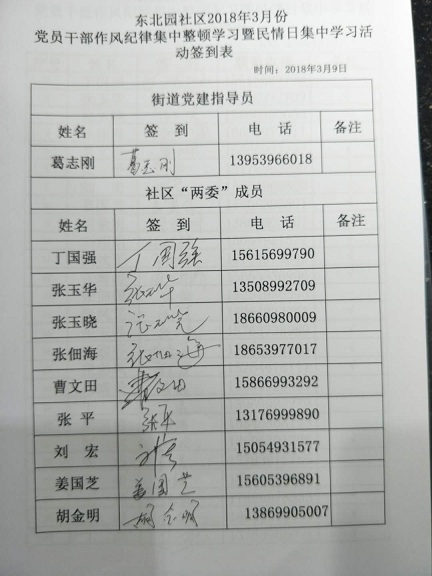 东北园社区2018年3月份
党员干部作风纪律集中整顿学习暨民情日集中学习活
动签到表
时间：2018年3月9日
街道党建指导员
姓名 签 到 电 话 备注
葛志刚 葛志刚 13953966018
社区“两委”成员
姓名 签 到 电 话 备注
丁国强 丁国强 15615699790
张玉华 张玉华 13508992709
张玉晓 张玉晓 18660980009
张佃海 张佃海 18653977017
曹文田 曹文田 15866993292
张 平 张平 13176999890
刘 宏 刘宏 15054931577
姜国芝 姜国芝 15605396891
胡金明 胡金明 13869905007